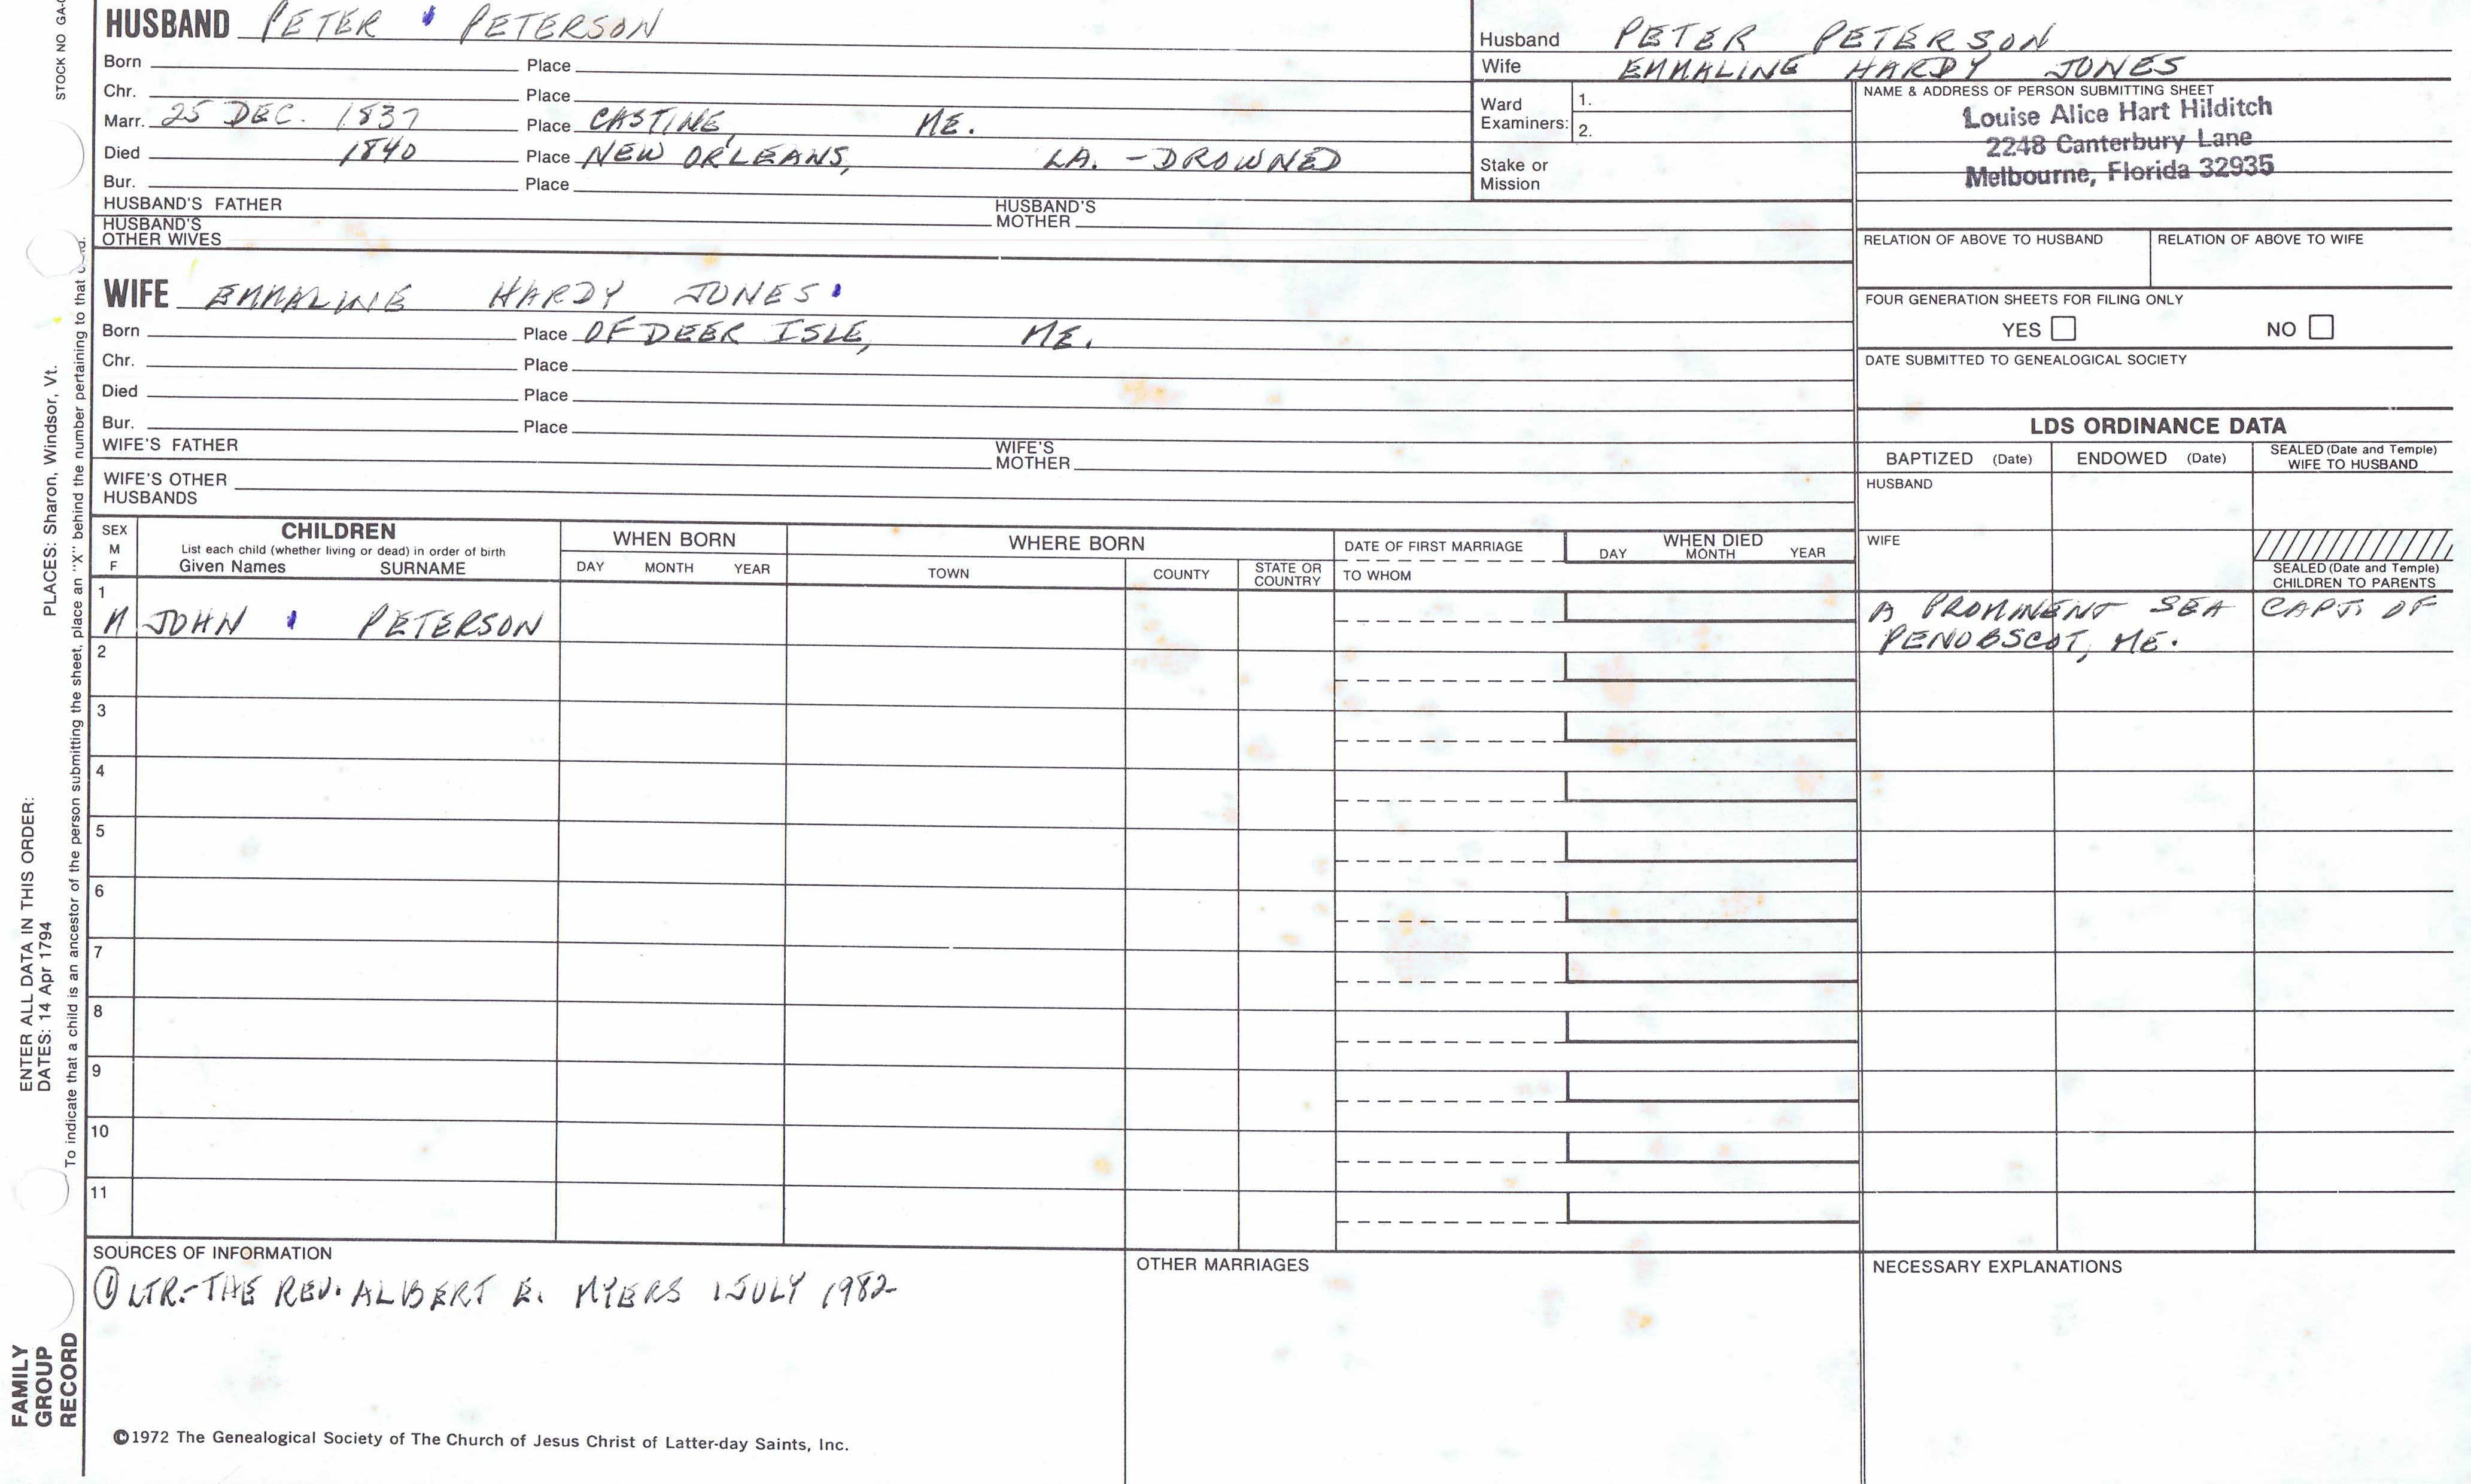 STOCK NO GA-
HUSBAND PETER PETERSON
Born Place
Chr. Place
Marr. 25 DEC. 1837 Place CASTINE, ME.
Died 1840 Place NEW ORLEANS, LA. - DROWNED
Bur. Place
HUSBAND'S FATHER HUSBAND'S MOTHER
HUSBAND'S OTHER WIVES
Husband PETER PETERSON
Wife EMMALINE HARDY JONES
Ward Examiners: 1.
2.
Stake or Mission
NAME & ADDRESS OF PERSON SUBMITTING SHEET
Louise Alice Hart Hilditch
2248 Canterbury Lane
Melbourne, Florida 32935
RELATION OF ABOVE TO HUSBAND RELATION OF ABOVE TO WIFE
FOUR GENERATION SHEETS FOR FILING ONLY
YES NO
DATE SUBMITTED TO GENEALOGICAL SOCIETY
WIFE EMMALINE HARDY JONES
Born Place OF DEER ISLE, ME.
Chr. Place
Died Place
Bur. Place
WIFE'S FATHER WIFE'S MOTHER
WIFE'S OTHER HUSBANDS
LDS ORDINANCE DATA
BAPTIZED (Date) ENDOWED (Date) SEALED (Date and Temple) WIFE TO HUSBAND
HUSBAND
WIFE
SEALED (Date and Temple) CHILDREN TO PARENTS
SEX M F
CHILDREN
List each child (whether living or dead) in order of birth
Given Names SURNAME
WHEN BORN
DAY MONTH YEAR
WHERE BORN
TOWN COUNTY STATE OR COUNTRY
DATE OF FIRST MARRIAGE
TO WHOM
WHEN DIED
DAY MONTH YEAR
1
M JOHN PETERSON A PROMINENT SEA CAPT. OF
PENOBSCOT, ME.
2
3
4
5
6
7
8
9
10
11
SOURCES OF INFORMATION
① LTR.-THE REV. ALBERT E. MYERS 1 JULY 1982
OTHER MARRIAGES
NECESSARY EXPLANATIONS
©1972 The Genealogical Society of The Church of Jesus Christ of Latter-day Saints, Inc.
FAMILY
GROUP
RECORD
ENTER ALL DATA IN THIS ORDER:
DATES: 14 Apr 1794 PLACES: Sharon, Windsor, Vt.
To indicate that a child is an ancestor of the person submitting the sheet, place an "X" behind the number pertaining to that